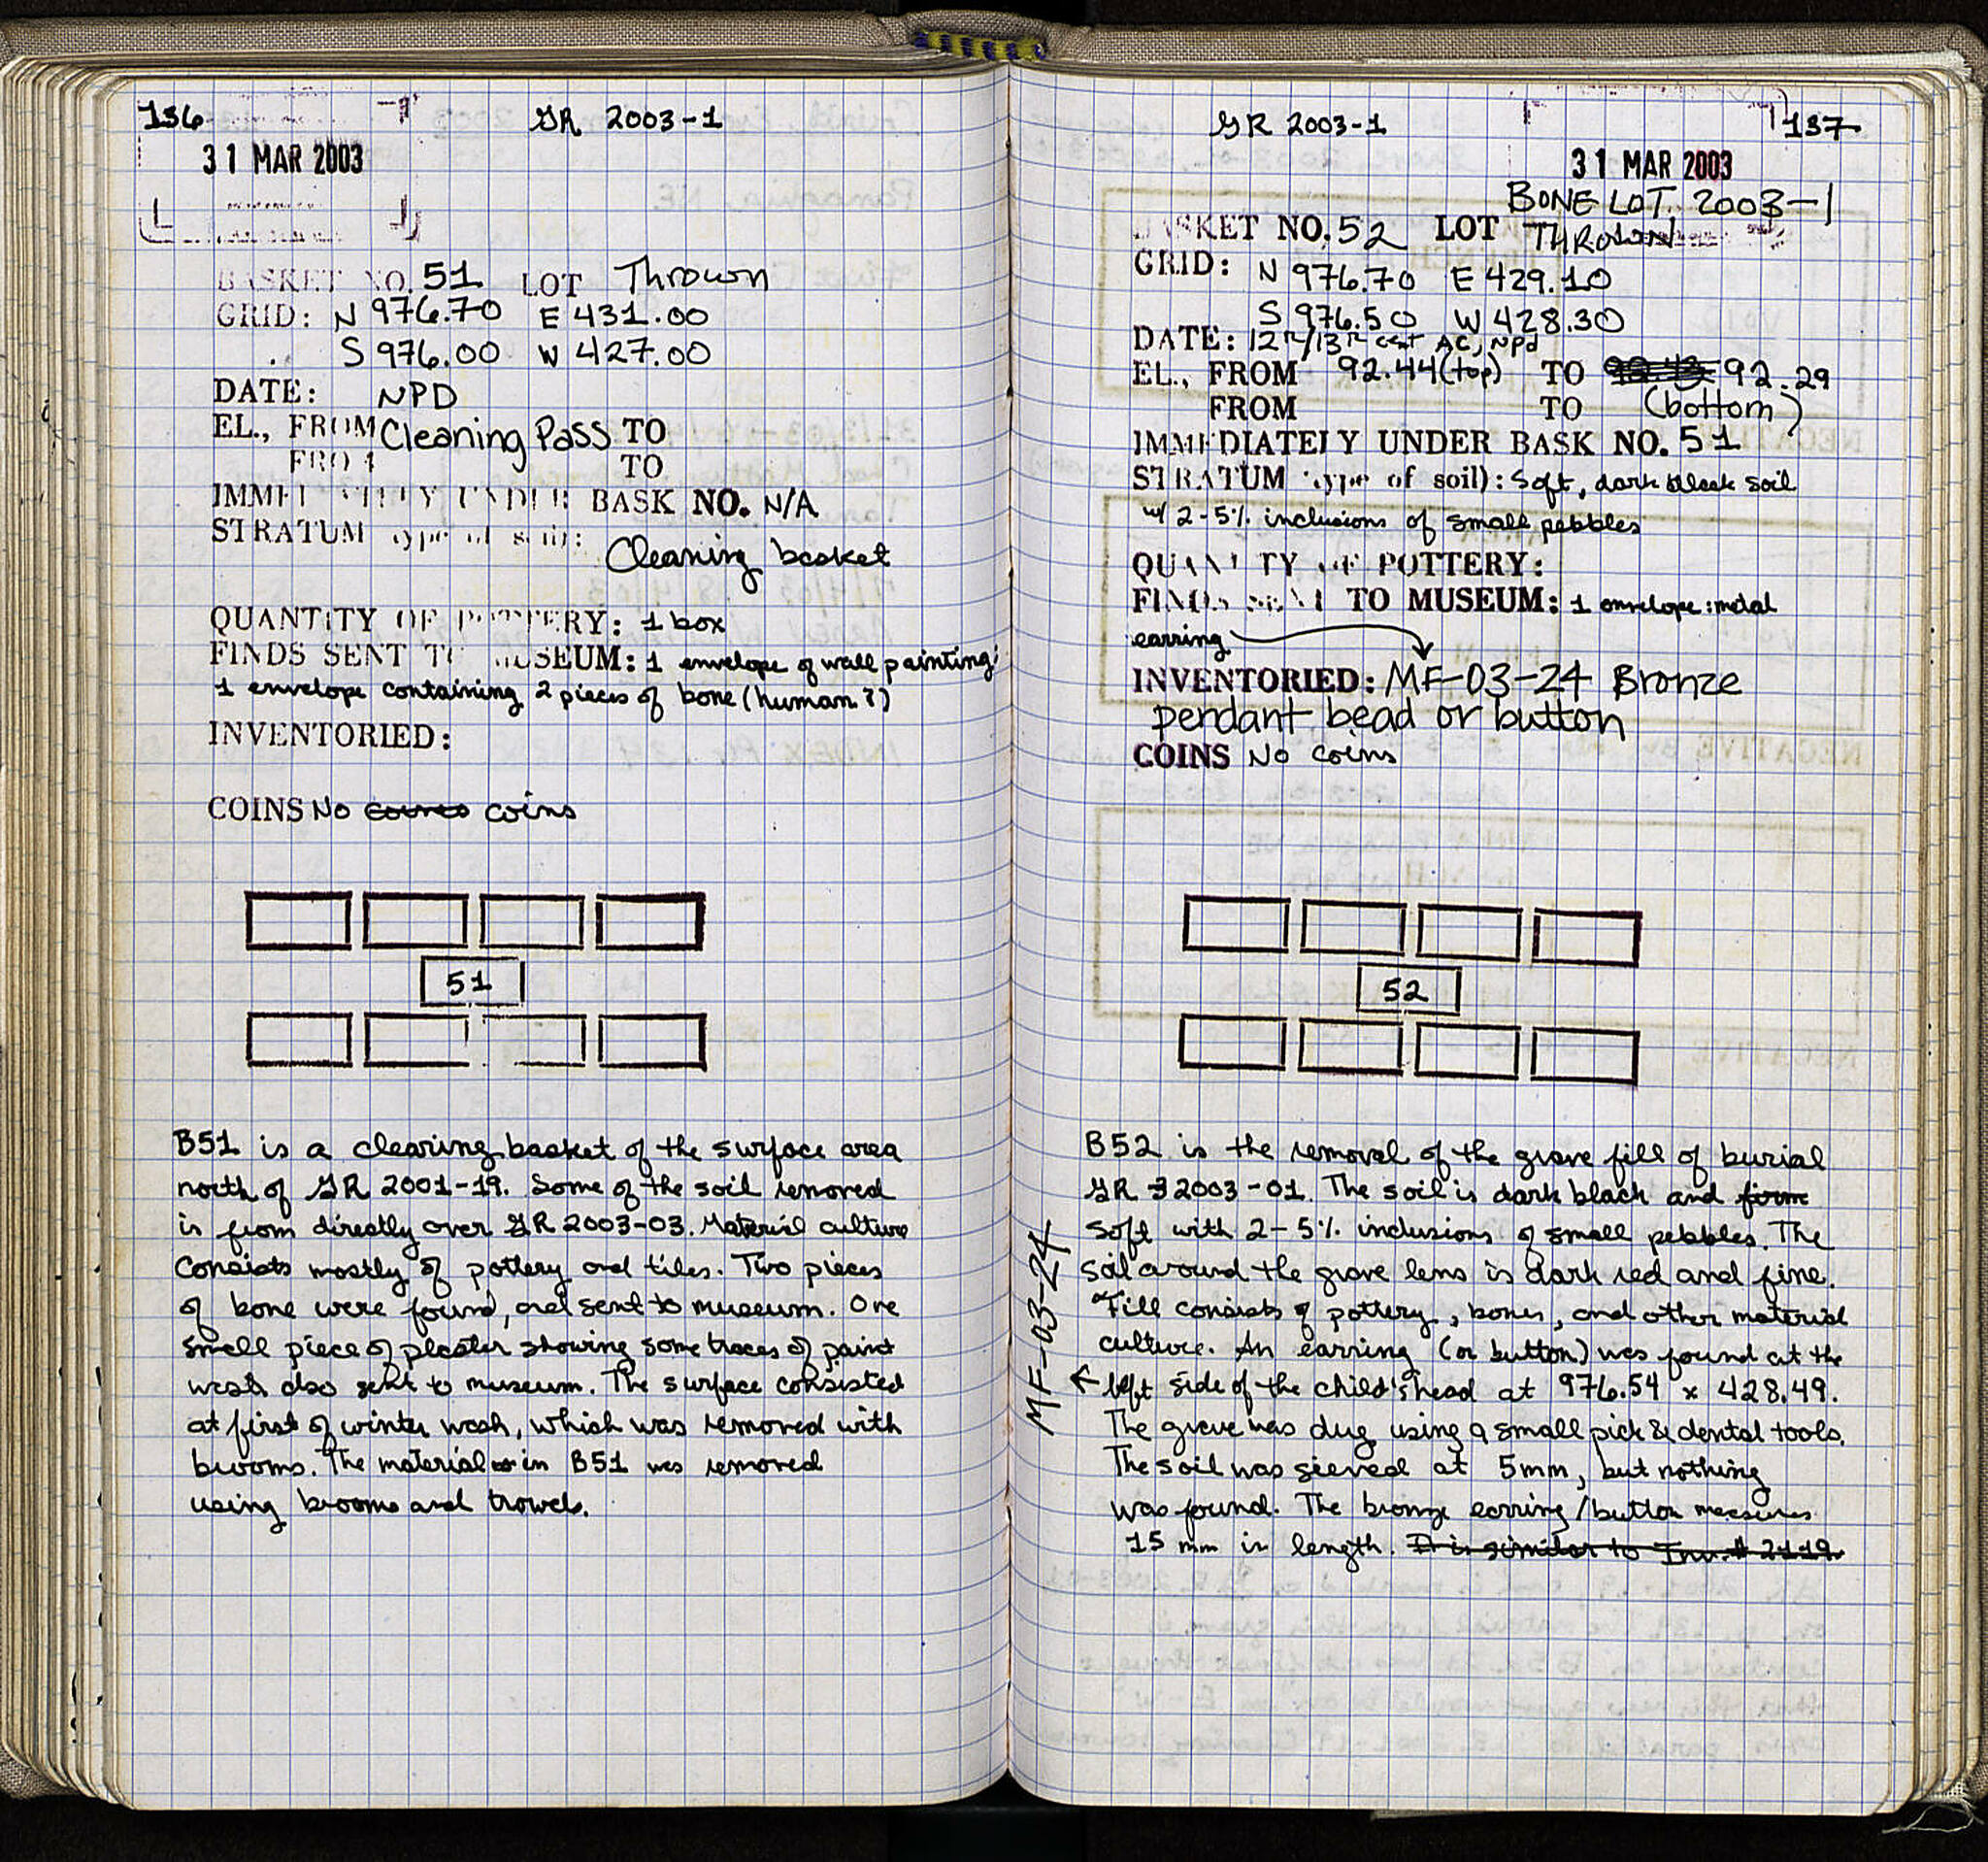 136 GR 2003-1
31 MAR 2003
BASKET NO. 51 LOT Thrown
GRID: N 976.70 E 431.00
S 976.00 W 427.00
DATE: NPD
EL., FROM Cleaning Pass TO
FROM TO
IMMEDIATELY UNDER BASK NO. N/A
STRATUM (type of soil): Cleaning basket
QUANTITY OF POTTERY: 1 box
FINDS SENT TO MUSEUM: 1 envelope of wall painting;
1 envelope containing 2 pieces of bone (human?)
INVENTORIED:
COINS No coines coins
51
B51 is a cleaning basket of the surface area
north of GR 2001-19. Some of the soil removed
is from directly over GR 2003-03. Material culture
consists mostly of pottery and tiles. Two pieces
of bone were found, and sent to museum. One
small piece of plaster showing some traces of paint
was also sent to museum. The surface consisted
at first of winter wash, which was removed with
brooms. The material in B51 was removed
using brooms and trowels.
GR 2003-1 137
31 MAR 2003
BONE LOT 2003-1
BASKET NO. 52 LOT THROWN
GRID: N 976.70 E 429.10
S 976.50 W 428.30
DATE: 12th/13th cent AC, NPD
EL., FROM 92.44 (top) TO 92.29
FROM TO (bottom)
IMMEDIATELY UNDER BASK NO. 51
STRATUM (type of soil): Soft, dark black soil
w/ 2-5% inclusions of small pebbles
QUANTITY OF POTTERY:
FINDS SENT TO MUSEUM: 1 envelope: metal
earring
INVENTORIED: MF-03-24 Bronze
pendant bead or button
COINS No coins
52
B52 is the removal of the grave fill of burial
GR 2003-01. The soil is dark black and firm
soft with 2-5% inclusions of small pebbles. The
soil around the grave lens is dark red and fine.
Fill consists of pottery, bones, and other material
culture. An earring (or button) was found at the
← left side of the child's head at 976.54 x 428.49.
The grave was dug using a small pick & dental tools.
The soil was sieved at 5mm, but nothing
was found. The bronze earring/button measures
15 mm in length. It is similar to Inv. # 2119.
MF-03-24